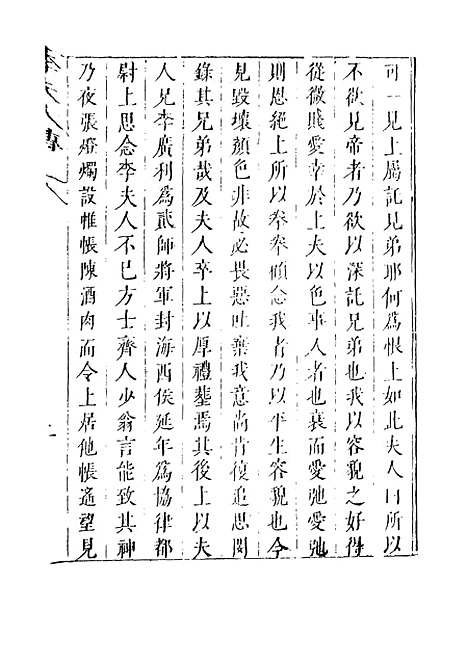 可一見上屬託兄弟耶何爲恨上如此夫人曰所以
不欲見帝者乃欲以深託兄弟也我以容貌之好得
從微賤愛幸於上夫以色事人者也衰而愛弛愛弛
則恩絕上所以拳拳傾念我者乃以平生容貌也今
見毀壞顏色非故必畏惡吐棄我意尚肯復追思閔
錄其兄弟哉及夫人卒上以厚禮葬焉其後上以夫
人兄李廣利爲貳師將軍封海西侯延年爲協律都
尉上思念李夫人不已方士齊人少翁言能致其神
乃夜張燈燭設帷帳陳酒肉而令上居他帳遙望見
李夫人傳